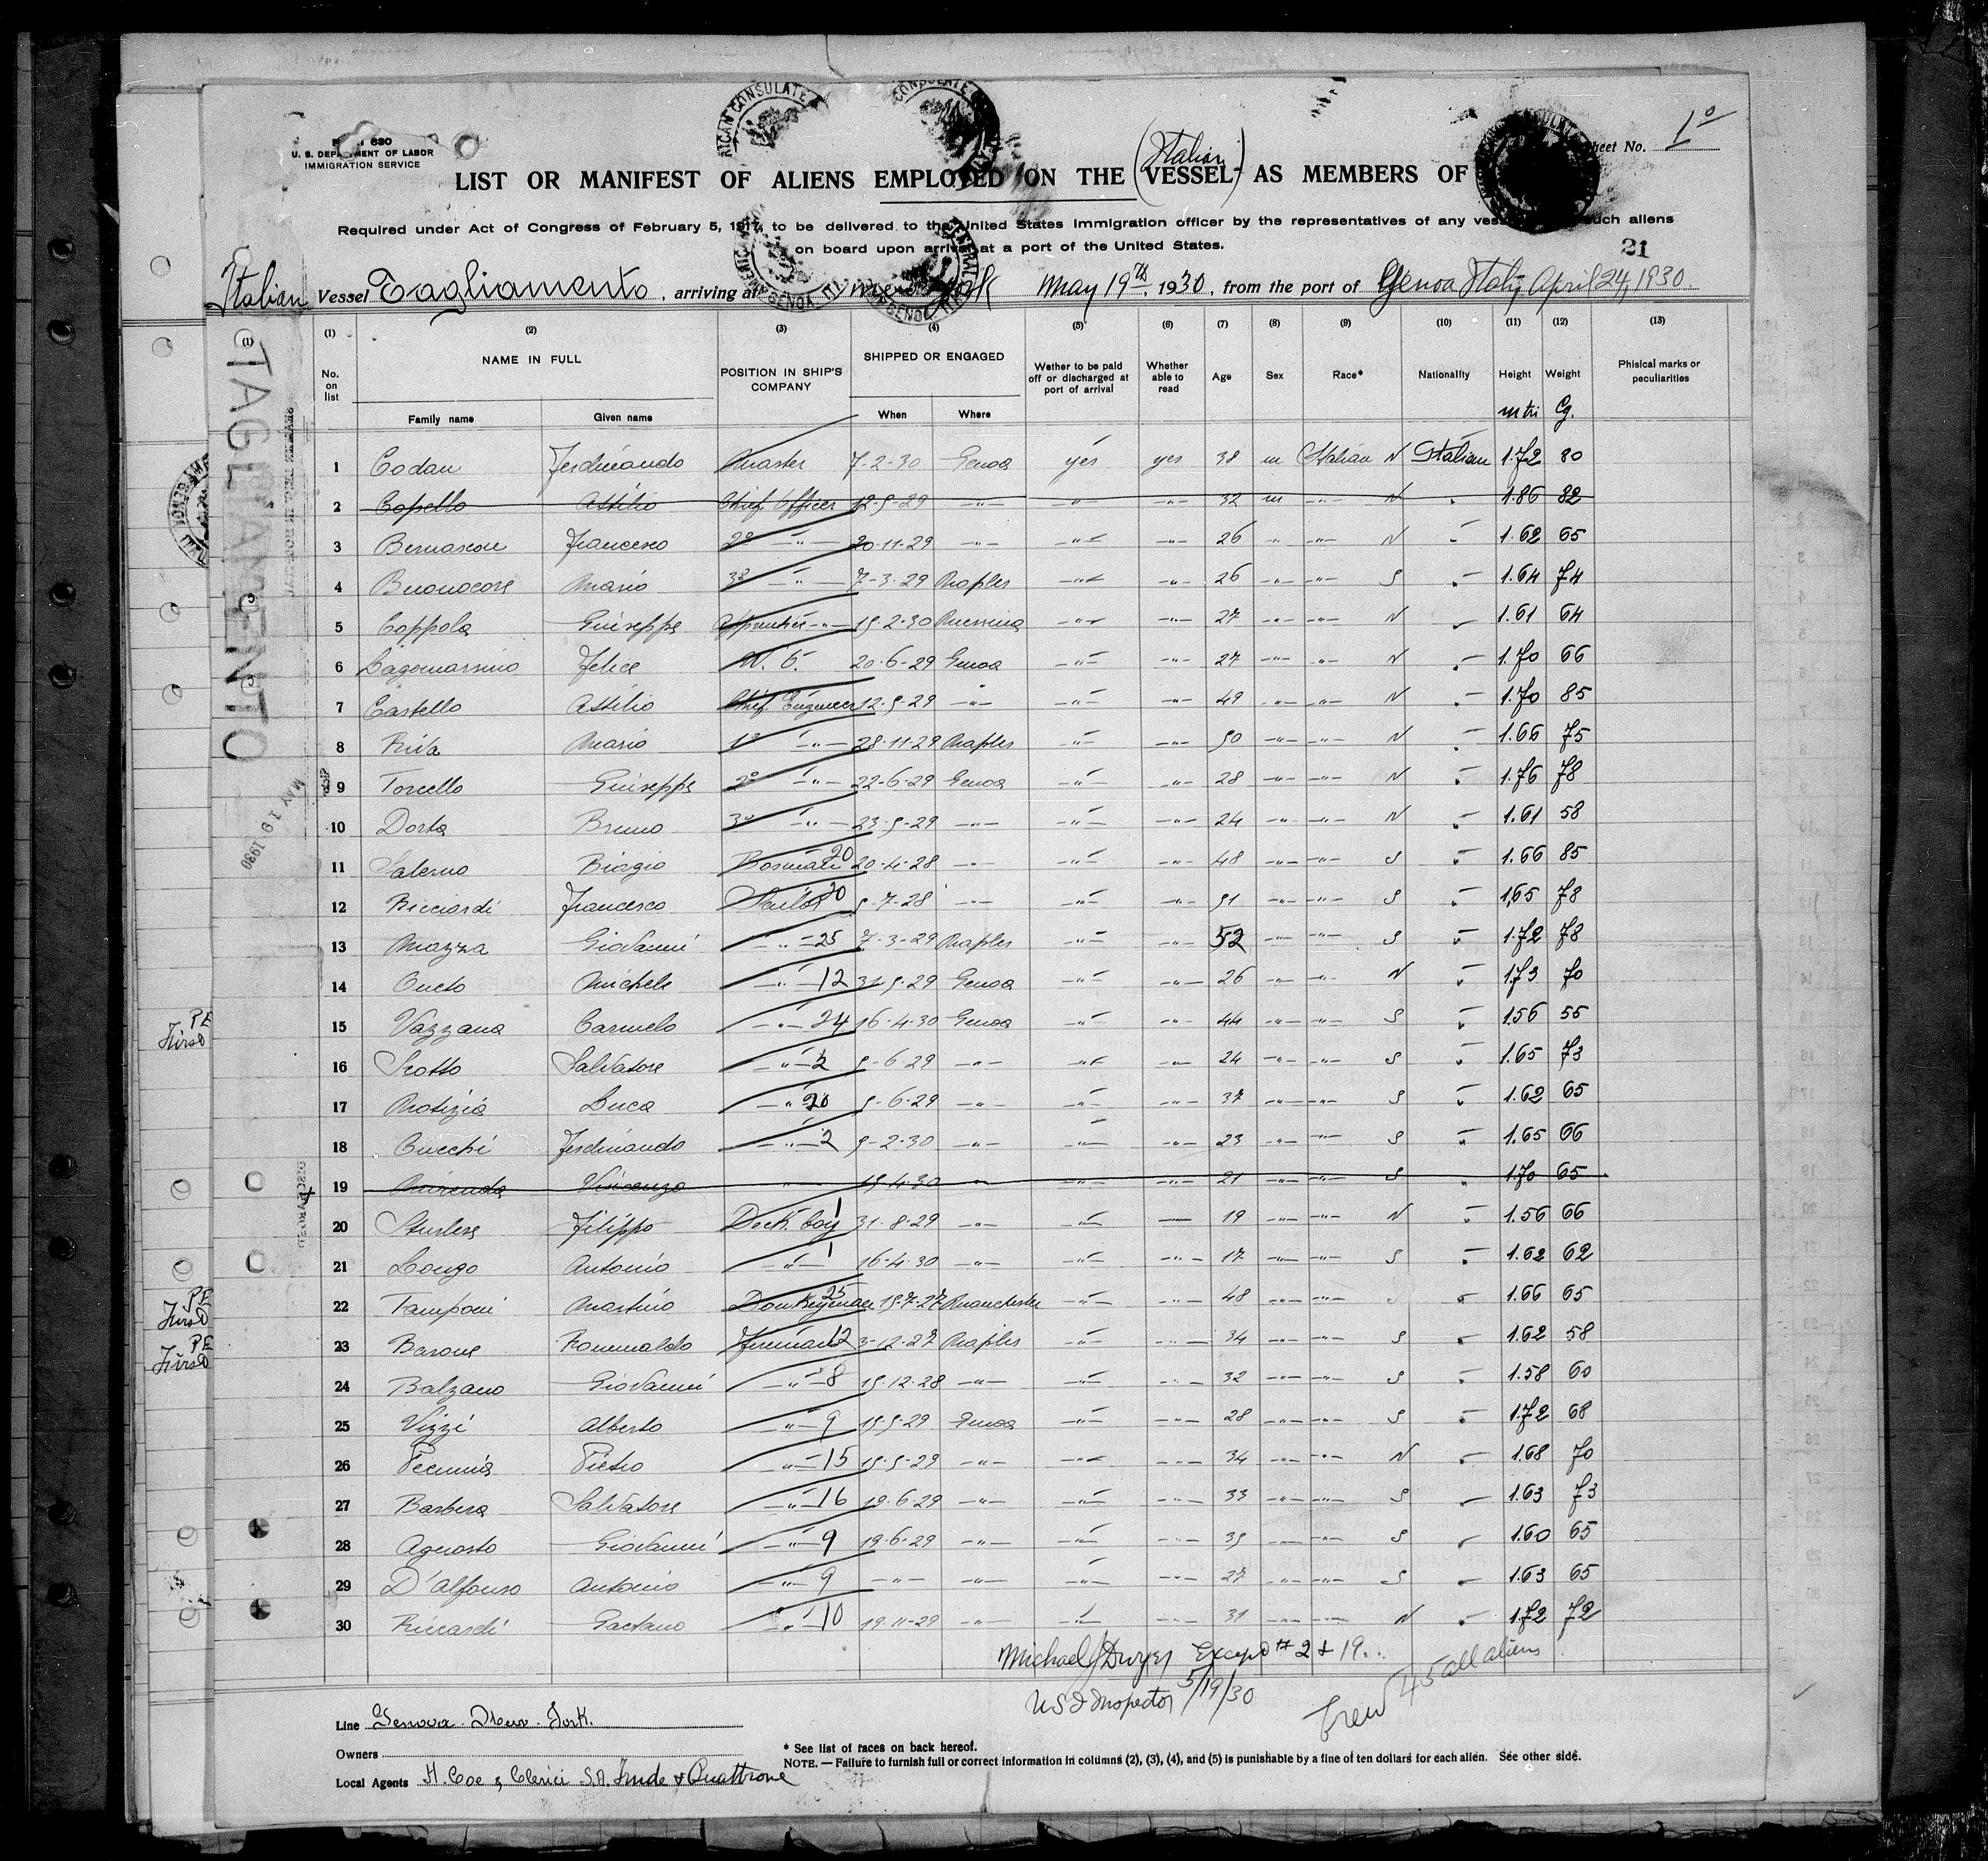 FORM 680
U. S. DEPARTMENT OF LABOR
IMMIGRATION SERVICE
Sheet No. 1º
LIST OR MANIFEST OF ALIENS EMPLOYED ON THE (Italian) VESSEL AS MEMBERS OF
Required under Act of Congress of February 5, 1917, to be delivered to the United States Immigration officer by the representatives of any vessel such aliens
on board upon arrival at a port of the United States.
21
Italian Vessel Tagliamento, arriving at New York May 19th, 1930, from the port of Genoa Italy April 24, 1930.
TAGLIAMENTO
MAY 19 1930
(1) (2) (3) (4) (5) (6) (7) (8) (9) (10) (11) (12) (13)
No. on list NAME IN FULL POSITION IN SHIP'S COMPANY SHIPPED OR ENGAGED Wether to be paid off or discharged at port of arrival Whether able to read Age Sex Race* Nationality Height Weight Phisical marks or peculiarities
Family name Given name When Where mtri Cg.
1 Codan Ferdinando Master 7-2-30 Genoa yes yes 38 m Italian N Italian 1.72 80
2 Copello Attilio Chief Officer 12-9-29 -"- -"- -"- 32 m -"- N " 1.86 82
3 Bernascon Francesco 2º -"- 20-11-29 -"- -"- -"- 26 " -"- N " 1.62 65
4 Buonocore Mario 3º -"- 7-3-29 Naples -"- -"- 26 -"- -"- S " 1.64 74
5 Coppola Giuseppe Apprentice -"- 19-2-30 Messina -"- -"- 27 -"- -"- N " 1.61 64
6 Lagomarsino Felice W. O. 20-6-29 Genoa -"- -"- 27 -"- -"- N " 1.70 66
7 Castello Attilio Chief Engineer 12-9-29 -"- -"- -"- 49 -"- -"- N " 1.70 85
8 Riva Mario 1º -"- 28-11-29 Naples -"- -"- 50 -"- -"- N " 1.66 75
9 Torcello Giuseppe 2º -"- 22-6-29 Genoa -"- -"- 28 -"- -"- N " 1.76 78
10 Dorta Bruno 3º -"- 23-9-29 -"- -"- -"- 24 -"- -"- N " 1.61 58
11 Salerno Biagio Bosmati 20 20-4-28 -"- -"- -"- 48 -"- -"- S " 1.66 85
12 Ricciardi Francesco Sailor 30 9-7-28 -"- -"- -"- 51 -"- -"- S " 1,65 78
13 Mazza Giovanni -"- 25 7-3-29 Naples -"- -"- 52 -"- -"- S " 1.72 78
14 Oneto Michele -"- 12 31-9-29 Genoa -"- -"- 26 -"- -"- N " 1.73 70
PE First
15 Vazzana Carmelo -"- 24 16-4-30 Genoa -"- -"- 44 -"- -"- S " 1.56 55
16 Scotto Salvatore -"- 2 9-6-29 -"- -"- -"- 24 -"- -"- S " 1.65 73
17 Notizia Luca -"- 20 9-6-29 -"- -"- -"- 37 -"- -"- S " 1.62 65
18 Cuechi Ferdinando -"- 2 9-2-30 -"- -"- -"- 23 -"- -"- S " 1.65 66
19 Mirenda Vincenzo " 19-4-30 " -"- -"- 21 -"- -"- S " 1.70 65
20 Sturlese Filippo Deck boy 1 31-8-29 -"- -"- -"- 19 -"- -"- N " 1.56 66
21 Longo Antonio -"- 1 16-4-30 -"- -"- -"- 17 -"- -"- S " 1.62 62
PE First
22 Tamponi Martino Donkeyman 25 19-7-27 Manchester -"- -"- 48 -"- -"- " 1.66 65
PE First
23 Barone Romualdo Fireman 12 3-12-27 Naples -"- -"- 34 -"- -"- S " 1.62 58
24 Balzano Giovanni -"- 8 19-12-28 -"- -"- -"- 32 -"- -"- S " 1.58 60
25 Vizzi Alberto -"- 9 19-9-29 Genoa -"- -"- 28 -"- -"- S " 1.72 68
26 Pecunia Pietro -"- 15 19-9-29 -"- -"- -"- 34 -"- -"- N " 1.68 70
27 Barbera Salvatore -"- 16 19-6-29 -"- -"- -"- 33 -"- -"- S " 1.63 73
28 Agnosto Giovanni -"- 9 19-6-29 -"- -"- -"- 39 -"- -"- S " 1.60 65
29 D'Alfonso Antonio -"- 9 -"- -"- -"- -"- 27 -"- -"- S " 1.63 65
30 Riccardi Gaetano -"- 10 19-11-29 -"- -"- -"- 31 -"- -"- N " 1.72 72
Michael J Dwyer Except # 2 & 19.
US I Inspector 5/19/30
Crew 45 all aliens
Line Genova. New. York.
Owners
Local Agents H. Coe & Clerici S.A. Funde & Quattrone
* See list of races on back hereof.
NOTE. — Failure to furnish full or correct information in columns (2), (3), (4), and (5) is punishable by a fine of ten dollars for each alien. See other side.